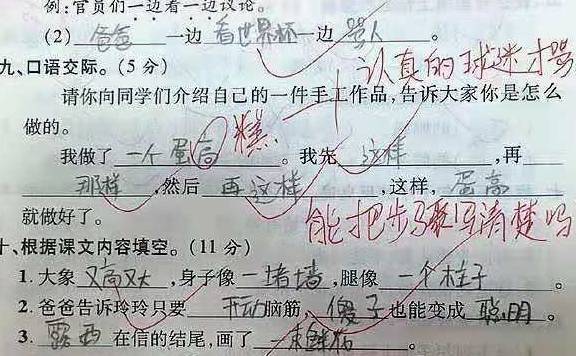 例:官员们一边看一边议论。
(2) 爸爸 一边 看世界杯 一边 骂人 。
认真的球迷才骂
九、口语交际。(5 分)
请你向同学们介绍自己的一件手工作品,告诉大家你是怎么
做的。
糕
我做了 一个蛋高 。我先 这样 ,再
那样 ,然后 再这样 ,这样, 蛋高
就做好了。
能把步骤写清楚吗
十、根据课文内容填空。(11 分)
1. 大象 又高又大 ,身子像 一堵墙 ,腿像 一个柱子 。
2. 爸爸告诉玲玲只要 开动 脑筋, 傻子 也能变成 聪明 。
3. 露西 在信的结尾,画了 一束鲜花 。